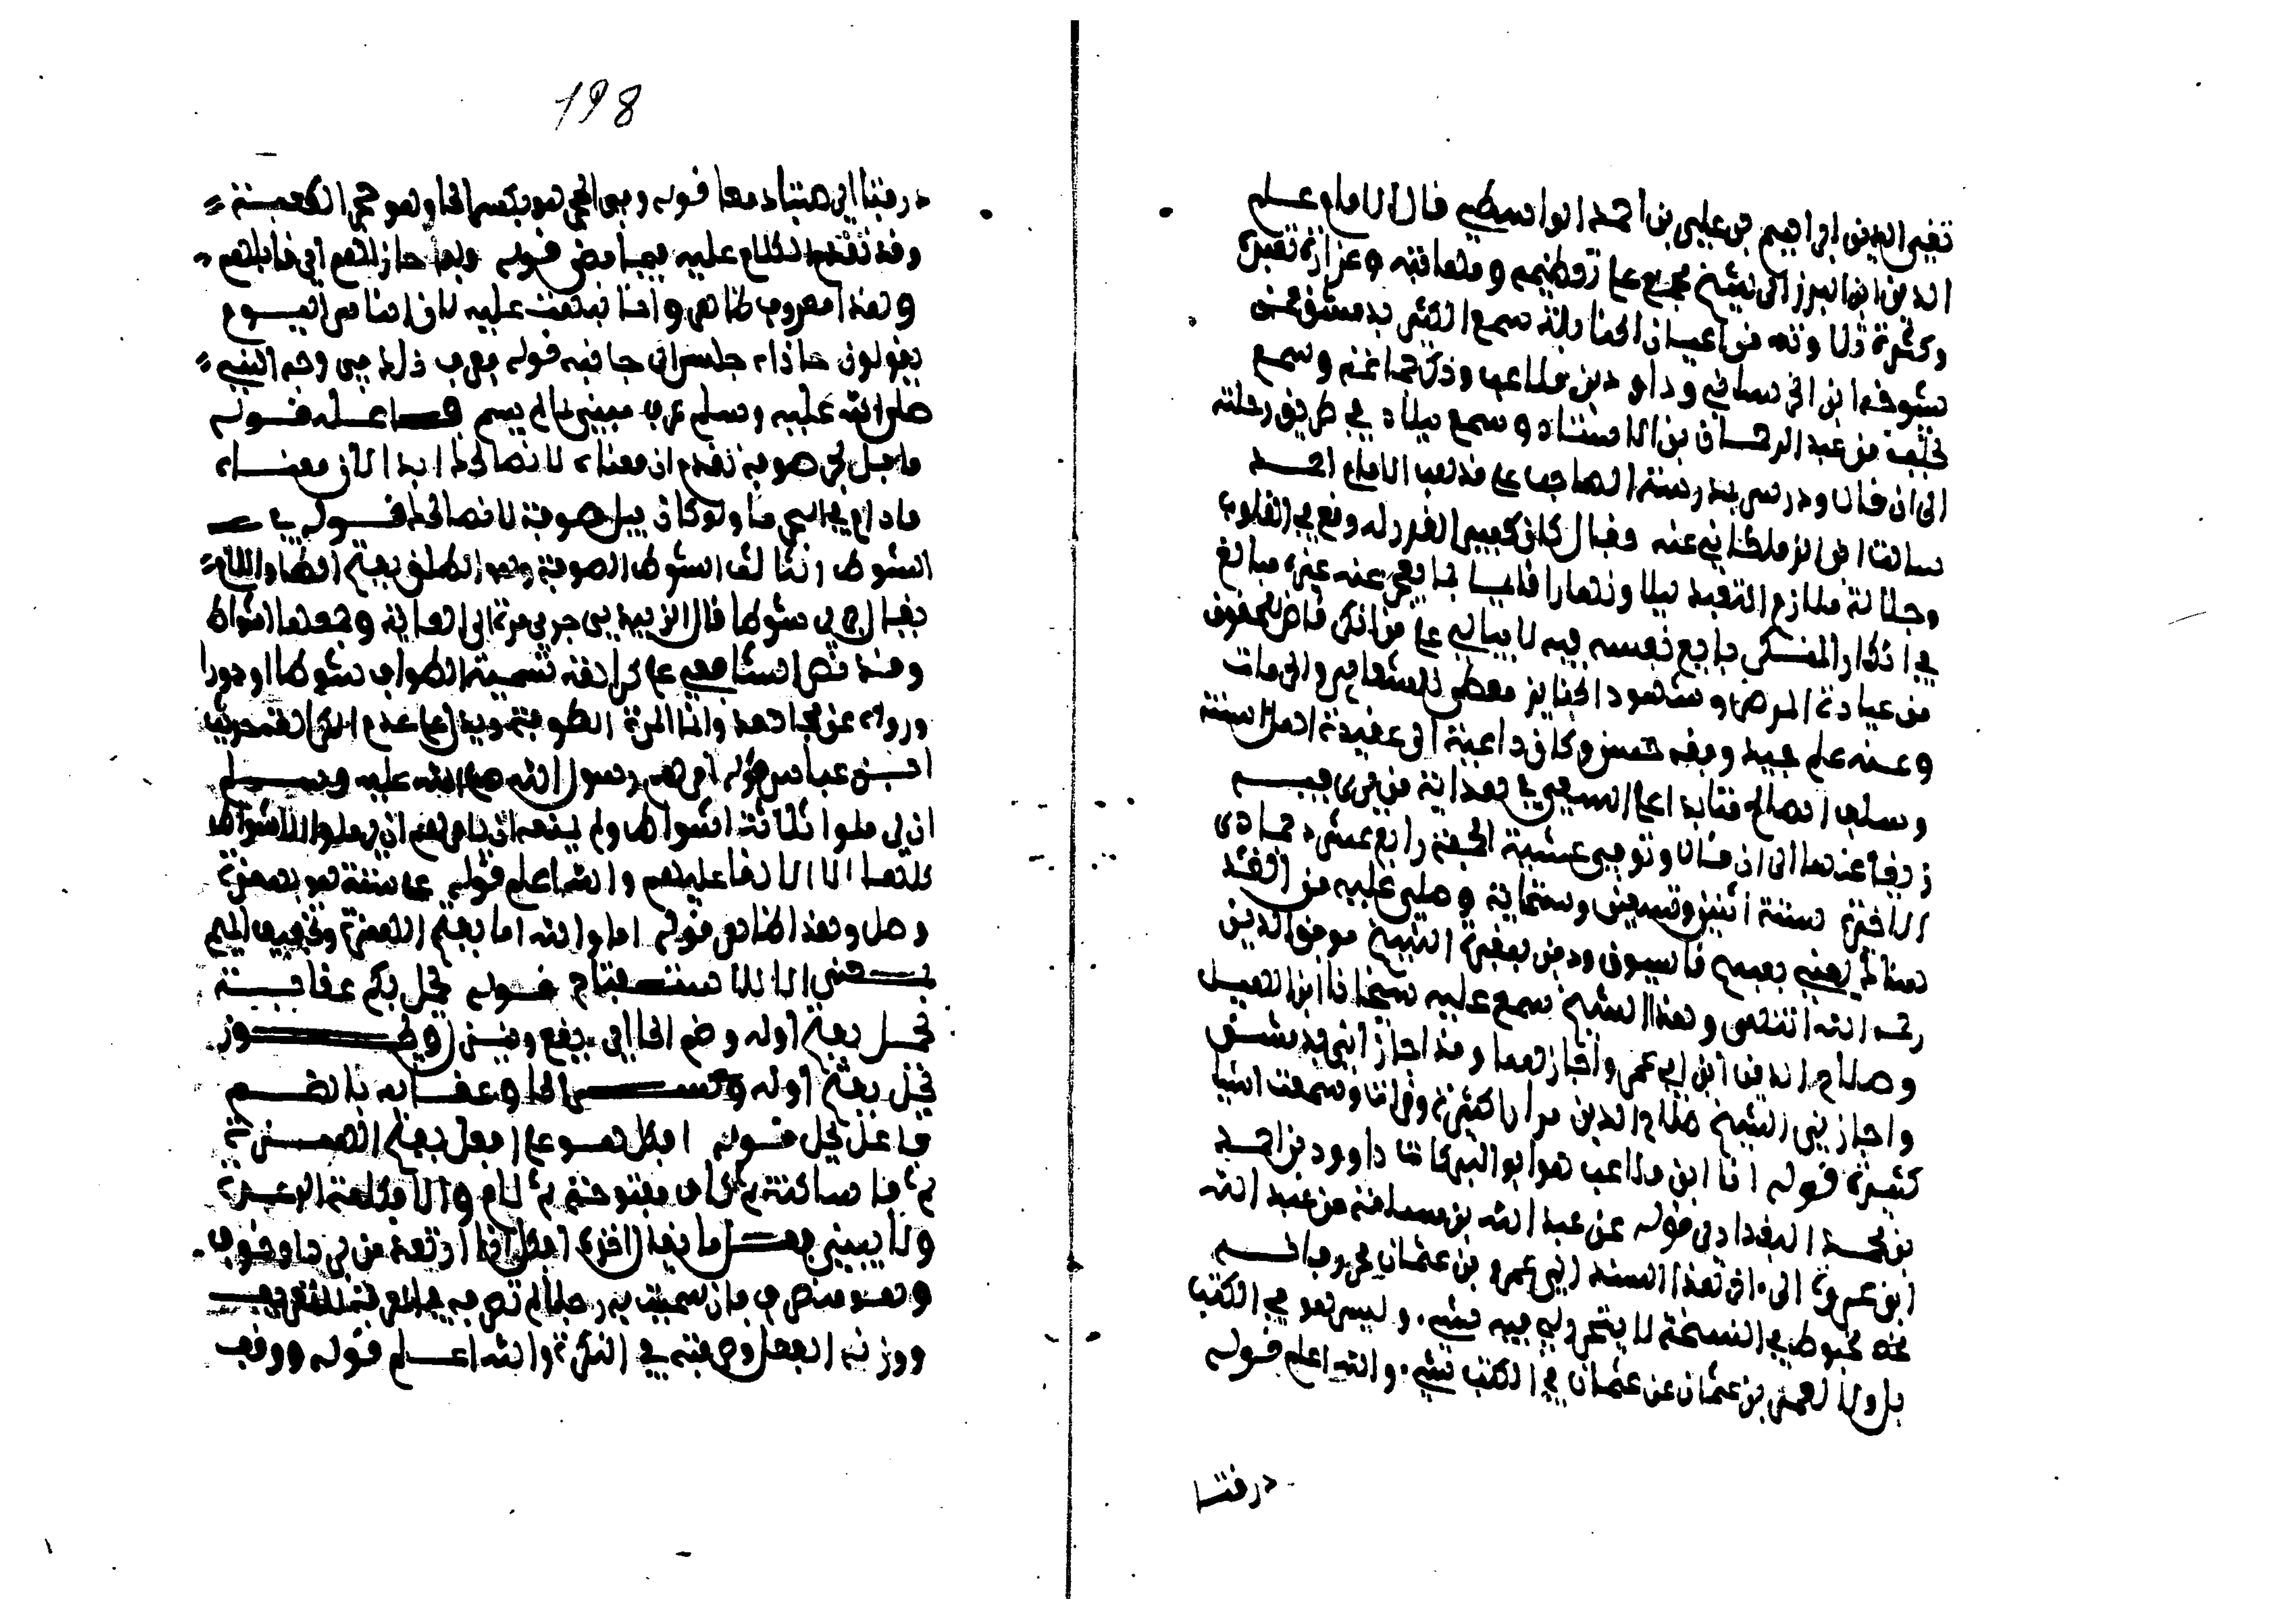 تقي الدين ابراهيم بن علي بن احمد الواسطي قال الامام علم
الدين ابن البرزالي شيخ مجمع على تعظيمه و وغزارة تعبده
وكثرة تلاوته من اعيان الحنابلة سمع الكثير بدمشق من
ابن ابي وداود بن ملاعب وذكر جماعة وسمع
بحلب من عبد الرحمان بن الاستاذ وسمع ببلاد في طريق رحلته
الى ان قال ودرس بمدرسة الصاحبة على مذهب الامام احمد
سالت ابن الزملكاني عنه فقال كان كبير القدر له وقع في القلوب
وجلالة ملازم التعبد ليلا ونهارا قايما بما يعجز عنه غيره مبالغ
في انكار المنكر بايع نفسه فيه لا يبالي على من انكر
من عيادة المرضى وشهود الجنايز معظم للشعاير والحرمات
وعنده علم جيد وفقه حسن وكان داعية الى عقيدة اهل السنة
وسلف الصالح مثابرا على السعي في هداية من يرى فيه
زيغا عنها الى ان قال وتوفي عشية الجمعة رابع عشر جمادى
الاخرة سنة اثنين وتسعين وستماية وصلي عليه من الغد
يعني بجامع قاسيون ودفن بمقبرة الشيخ موفق الدين
رحمه الله انتهى وهذا الشيخ سمع عليه شيخانا ابن الهبل
وصلاح الدين ابن ابي عمر واجازهما وقد اجاز ابن
واجازني الشيخ صلاح الدين مرارا كثيرة وقرات وسمعت اشيا
كثيرة قوله انا ابن ملاعب هو ابو البركات داوود بن احمد
بن محمد البغدادي قوله عن عبد الله بن مسلمة عن عبد الله
ابن عمرو الى في هذا السند الى عمرو بن عثمان
في النسخة لا يتحرر لي فيه شيء وليس هو في الكتب
بل ولا لعمر بن عثمان عن عثمان في الكتب شيء والله اعلم قوله
درفتا
198
درفتا الى قوله وفي الحجر هو بكسر الحا وهو حجر الكعبة
وقد تقدم الكلام عليه فيما مضى قوله ولما حازاهم اي قابلهم
وهذا معروف ظاهر وانما نبهت عليه لان الناس اليوم
يقولون حاذاه جلس الى جانبه قوله فعرف ذلك في وجه النبي
صلى الله عليه وسلم عرف مبني لما لم يسم فاعله قوله
ما بل بحر صوفة تقدم ان معناه لا نصالحك ابدا لان معناه
مادام في البحر ما ولو كان يبل صوفة لا نصالحك قوله في
الشوط الثالث الشوط وهو الطلق بفتح الطاء واللام
يقال جرى شوطا قال الزبيدي جري مرة الى الغاية وجمعها اشواط
وقد نص الشافعي على كراهة تسمية الطواف شوطا او دورا
ورواه عن مجاهد وانما المرة الطوفة ويدل على عدم الكراهة حديث
ابن عباس قوله امرهم رسول الله صلى الله عليه وسلم
ان يرملوا ثلاثة اشواط ولم يمنعه ان يامرهم ان يرملوا الاشواط
كلها الا الابقا عليهم والله اعلم قوله عايشة هو بهمزة
وصل وهذا ظاهر قوله اما والله اما بفتح الهمزة وتخفيف الميم
بمعنى الا للاستفتاح قوله تحل بكم عقابه
تحل بفتح اوله وضم الحا اي يقع وينزل ويجوز
تحل بفتح اوله وكسر الحا وعقابه بالضم
فاعل يحل قوله افكل هو على افعل بفتح الهمزة
ثم فا ساكنة ثم كاف مفتوحة ثم لام والافكل الرعدة
ولا يبنى منه فعل ما يقال اخذه افكل اذا ارتعد من برد او خوف
وهو منصرف فان سميت به رجلا لم تصرفه في المعرفة للتعريف
ووزن الفعل وصرفته في النكرة والله اعلم قوله ووقف